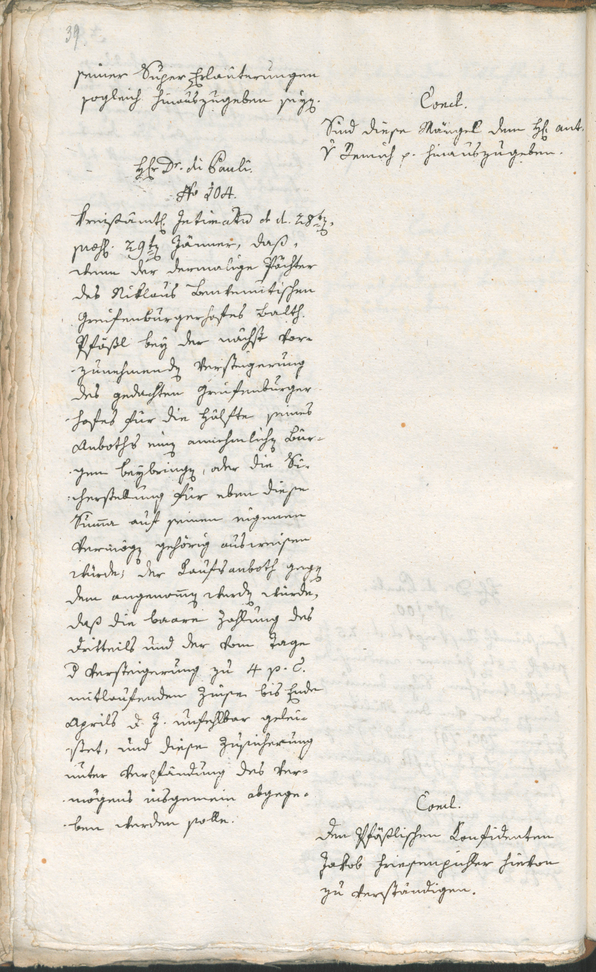 39.
seiner Super Erläuterungen
sogleich hinauszugeben seyn.
Concl.
Sind diese Mängel dem H. ant.
v. Remich p. hinauszugeben.
Hr. Dr. di Pauli.
No 104.
Kreisämtl. Intimatum d. d. 28ten,
praes. 29ten Jänner, daß,
wenn der dermalige Pächter
des Niklaus Benvenutischen
Greifenburgerhofes Balth.
Pfößl bey der nächst vor-
zunehmenden Versteigerung
des gedachten Greifenburger
hofes für die Hälfte seines
Anboths einen annehmlichen Bür-
gen beybringen, oder die Si-
cherstellung für eben diese
Summa auf seinen eigenen
Vermögen gehörig ausweisen
würde; der Kaufsanboth gegen
dem angenommen werden würde,
daß die baare Zahlung des
Drittels und der vom Tage
d Versteigerung zu 4 p. C.
mitlaufenden Zinse bis Ende
Aprils d. J. unfehlbar gelei-
stet, und diese Zusicherung
unter Verpfändung des Ver-
mögens insgemein abgege-
ben werden solle.
Concl.
Den Pfößlischen Konfidenten
Jakob hievon
zu verständigen.